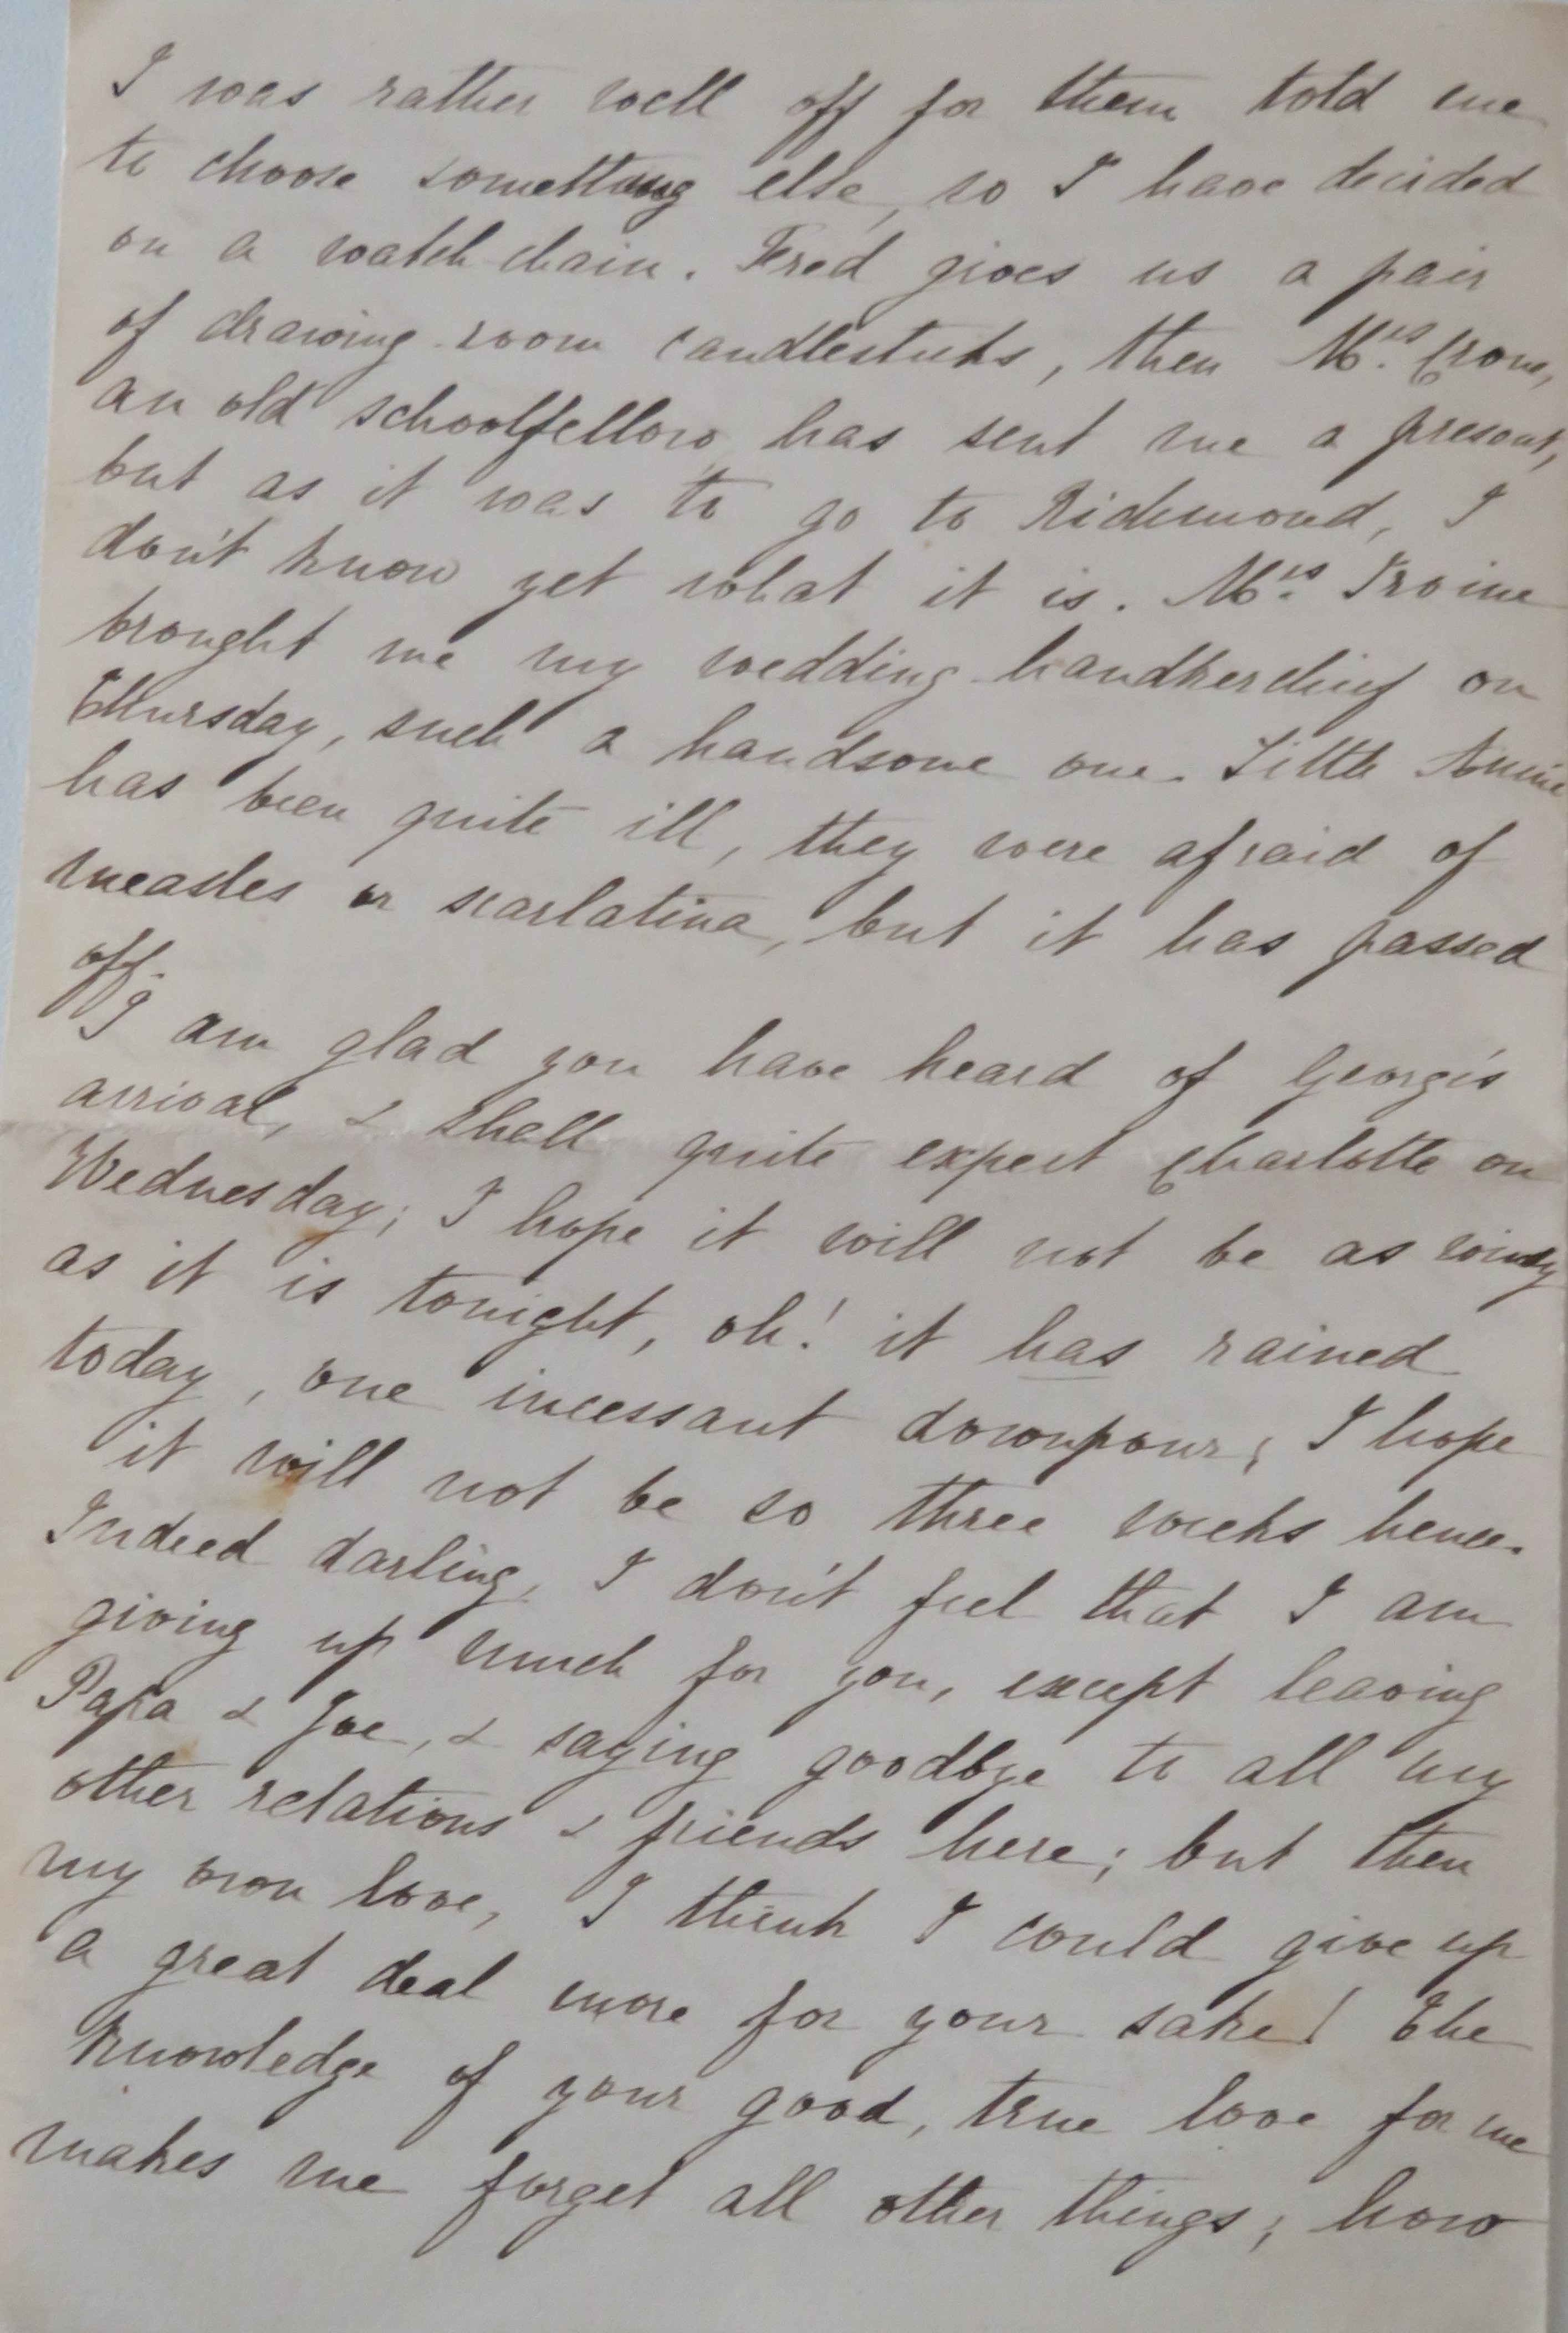 I was rather well off for them told me
to choose something else, so I have decided
on a watch chain. Fred gives us a pair
of drawing room candlesticks, then Mrs. Crone,
an old schoolfellow has sent me a present,
but as it was to go to Richmond, I
don't know yet what it is. Mrs. Irvine
brought me my wedding handkerchief on
Thursday, such a handsome one. Little Annie
has been quite ill, they were afraid of
measles or scarlatina, but it has passed
off.
I am glad you have heard of Georgie's
arrival, & shall quite expect Charlotte on
Wednesday; I hope it will not be as windy
as it is tonight, oh! it has rained
today, one incessant downpour; I hope
it will not be so three weeks hence.
Indeed darling, I don't feel that I am
giving up much for you, except leaving
Papa & Joe, & saying goodbye to all my
other relations & friends here; but then
my own love, I think I could give up
a great deal more for your sake! The
knowledge of your good, true love for me
makes me forget all other things; how